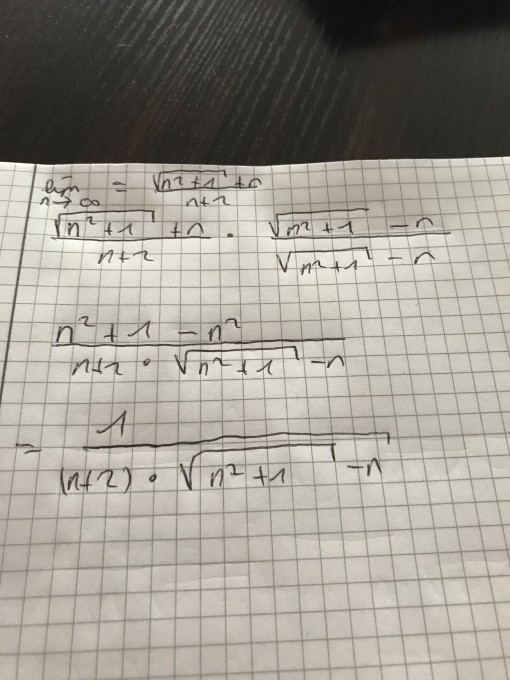 lim n→∞ = (√(n²+1) + n)/(n+2)
(√(n²+1) + n)/(n+2) · (√(n²+1) - n)/(√(n²+1) - n)
(n²+1 - n²)/(n+2 · √(n²+1) - n)
= 1/((n+2) · √(n²+1) - n)